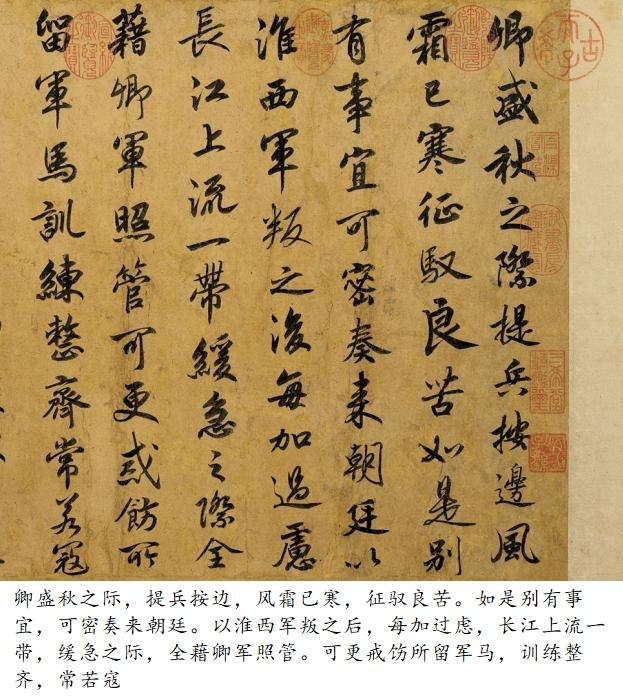 卿盛秋之際提兵按邊風
霜已寒征馭良苦如是別
有事宜可密奏来朝廷以
淮西軍叛之後每加過慮
長江上流一帶緩急之際全
藉卿軍照管可更戒飭所
留軍馬訓練整齊常若寇
卿盛秋之际，提兵按边，风霜已寒，征驭良苦。如是别有事
宜，可密奏来朝廷。以淮西军叛之后，每加过虑，长江上流一
带，缓急之际，全藉卿军照管。可更戒饬所留军马，训练整
齐，常若寇